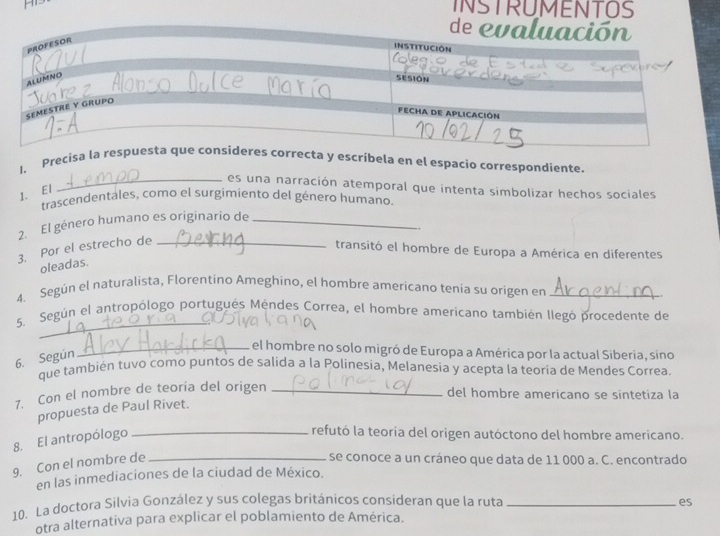 INSTRUMENTOS
de evaluación
PROFESOR
INSTITUCIÓN
RAUl
Colegio de Estud s Superiores
ALUMNO
SESIÓN
Juarez Alonso Dulce María
SEMESTRE Y GRUPO
FECHA DE APLICACIÓN
1=A
10/02/25
I. Precisa la respuesta que consideres correcta y escríbela en el espacio correspondiente.
1. El tempo es una narración atemporal que intenta simbolizar hechos sociales
trascendentales, como el surgimiento del género humano.
2. El género humano es originario de
3. Por el estrecho de Bering transitó el hombre de Europa a América en diferentes
oleadas.
4. Según el naturalista, Florentino Ameghino, el hombre americano tenía su origen en Argentina.
5. Según el antropólogo portugués Méndes Correa, el hombre americano también llegó procedente de
la teoría australiana
6. Según Alex Hardicka el hombre no solo migró de Europa a América por la actual Siberia, sino
que también tuvo como puntos de salida a la Polinesia, Melanesia y acepta la teoría de Mendes Correa.
7. Con el nombre de teoría del origen del hombre americano se sintetiza la
propuesta de Paul Rivet.
8. El antropólogo refutó la teoría del origen autóctono del hombre americano.
9. Con el nombre de se conoce a un cráneo que data de 11 000 a. C. encontrado
en las inmediaciones de la ciudad de México.
10. La doctora Silvia González y sus colegas británicos consideran que la ruta es
otra alternativa para explicar el poblamiento de América.